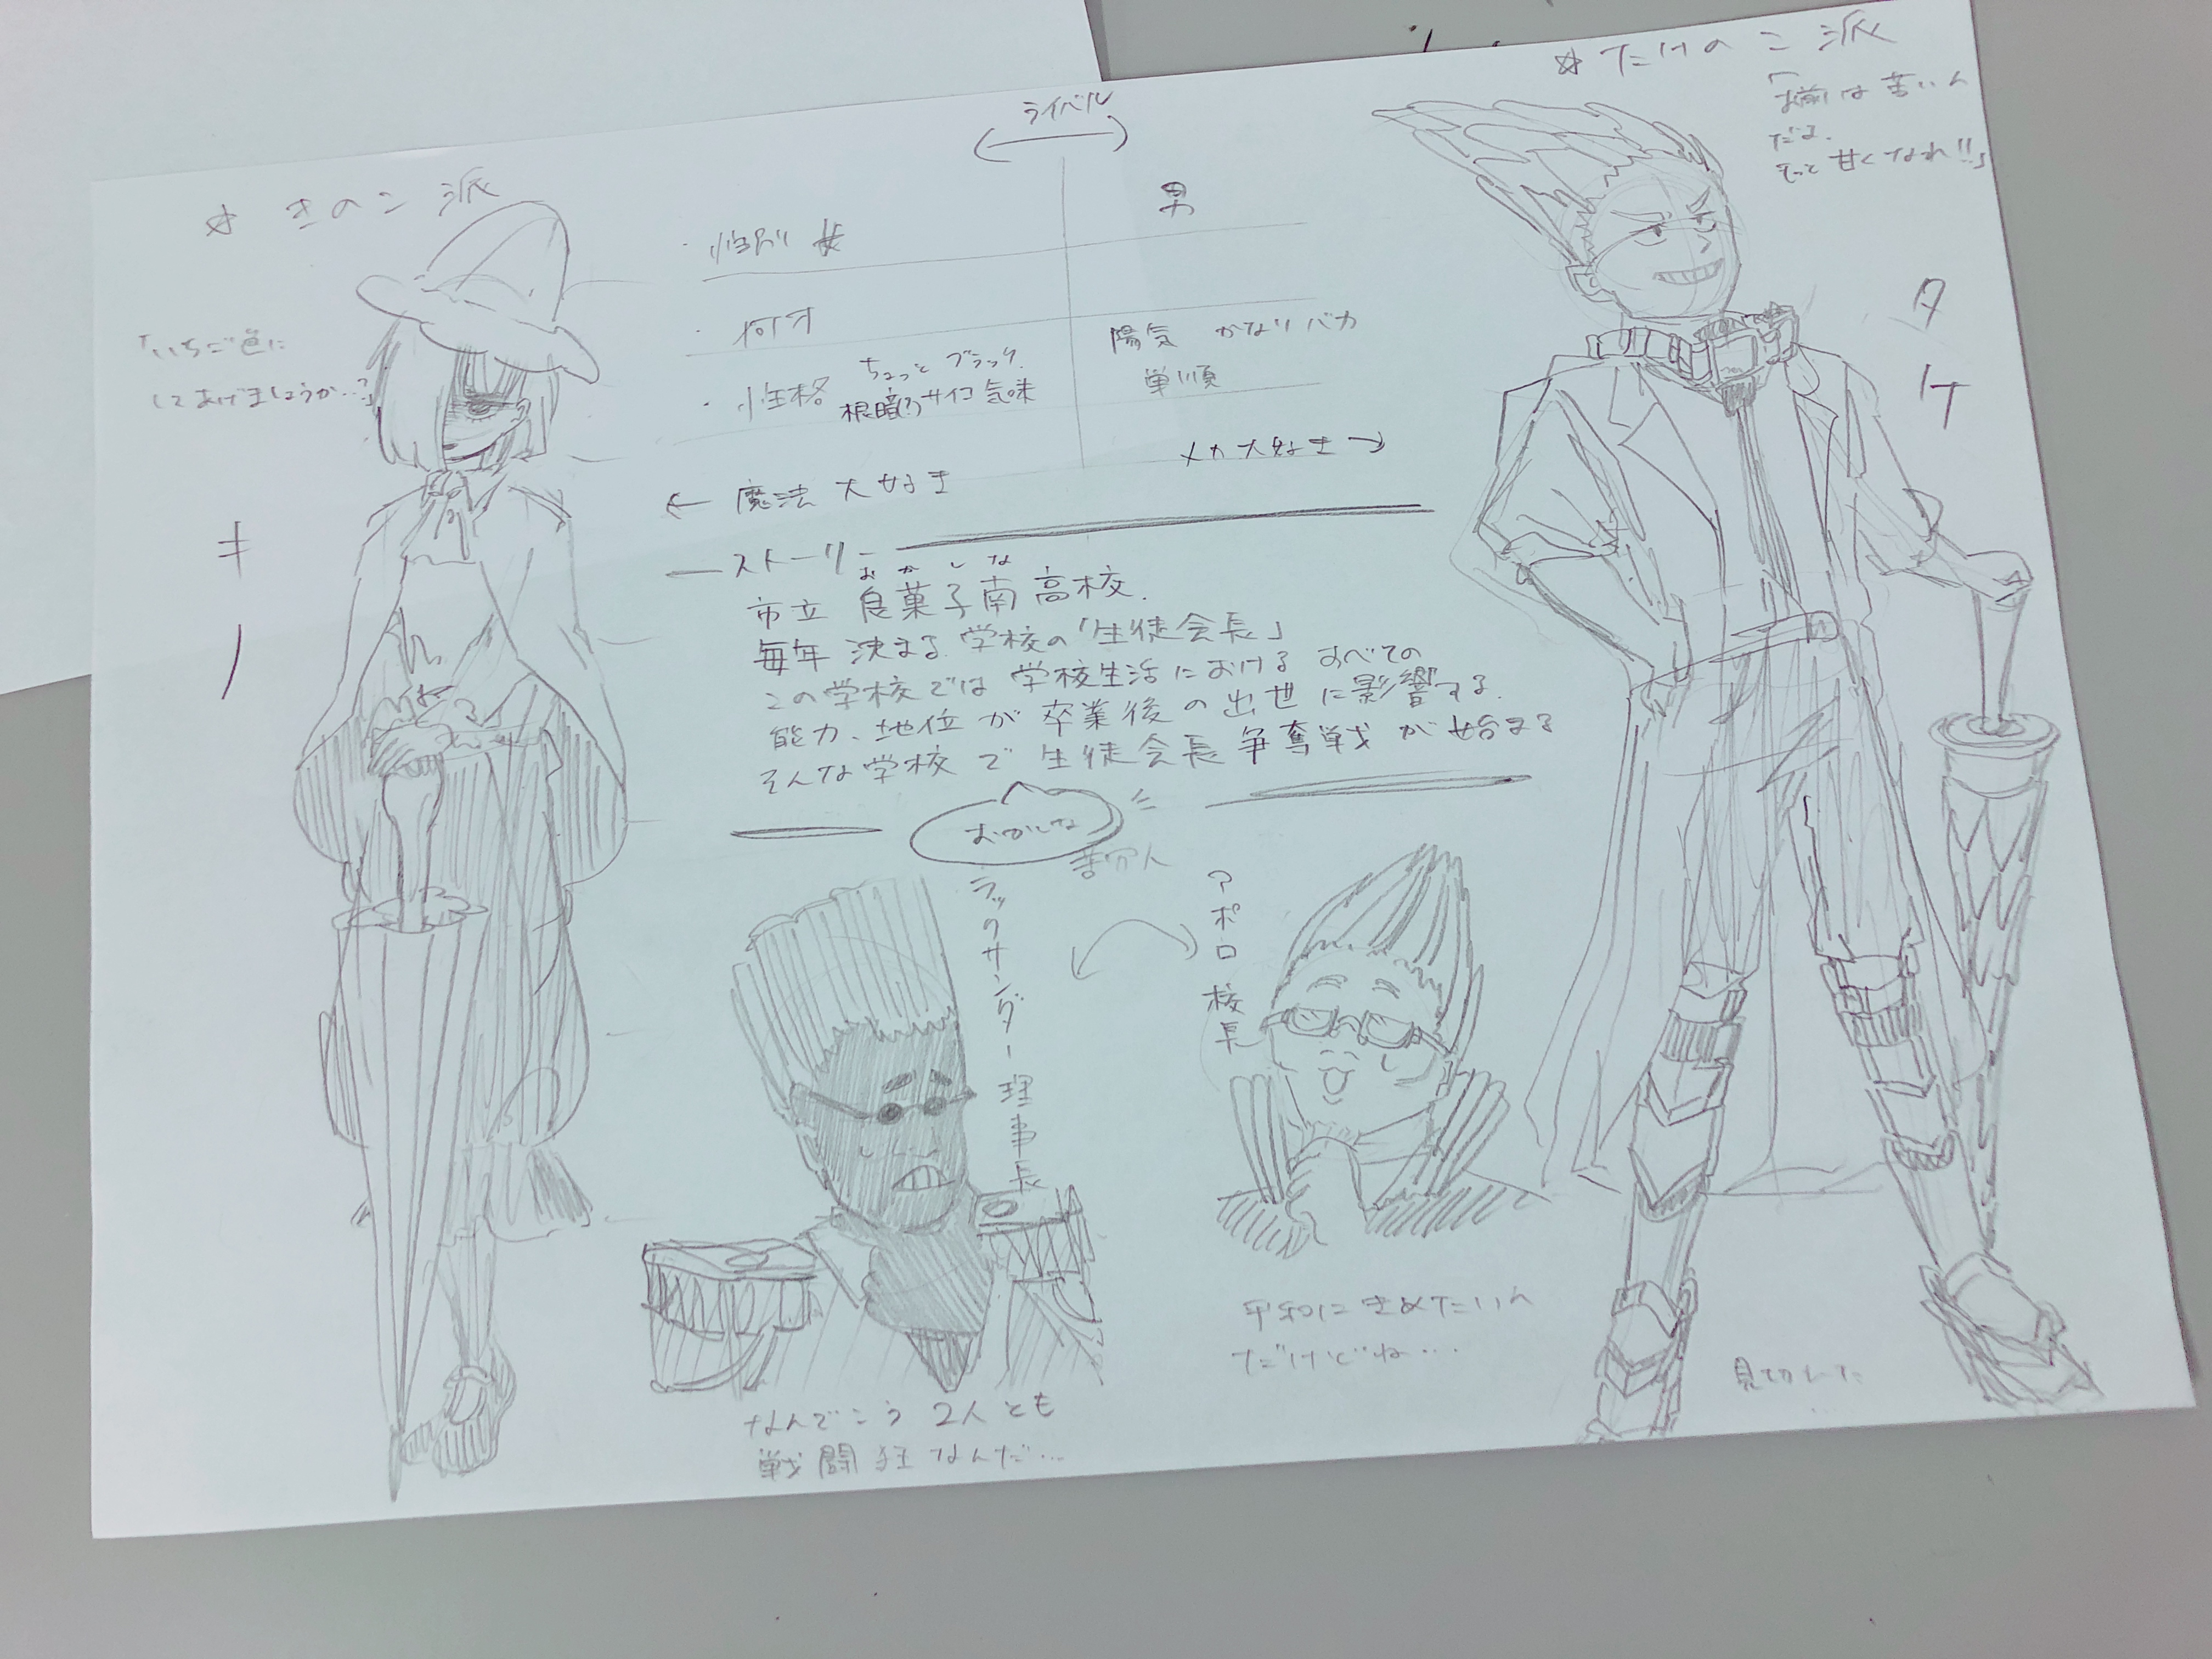 ☆ きのこ派
「いちご色に
してあげましょうか…?」
キノ
ライバル
・性別 女
男
・何才
・性格 ちょっとブラック
根暗 サイコ気味
陽気 かなりバカ
単順
← 魔法大好き
メカ大好き →
ストーリー
おかしな
市立 良菓子南高校.
毎年決まる学校の「生徒会長」
この学校では学校生活におけるすべての
能力、地位が卒業後の出世に影響する.
そんな学校で生徒会長争奪戦が始まる
おかしな
ラックサンダー理事長
アポロ校長
なんでこう2人とも
戦闘狂なんだ…
平和にきめたいん
だけどね…
☆ たけのこ派
「お前は苦いん
だよ.
もっと甘くなれ!!」
タケ
見切れた